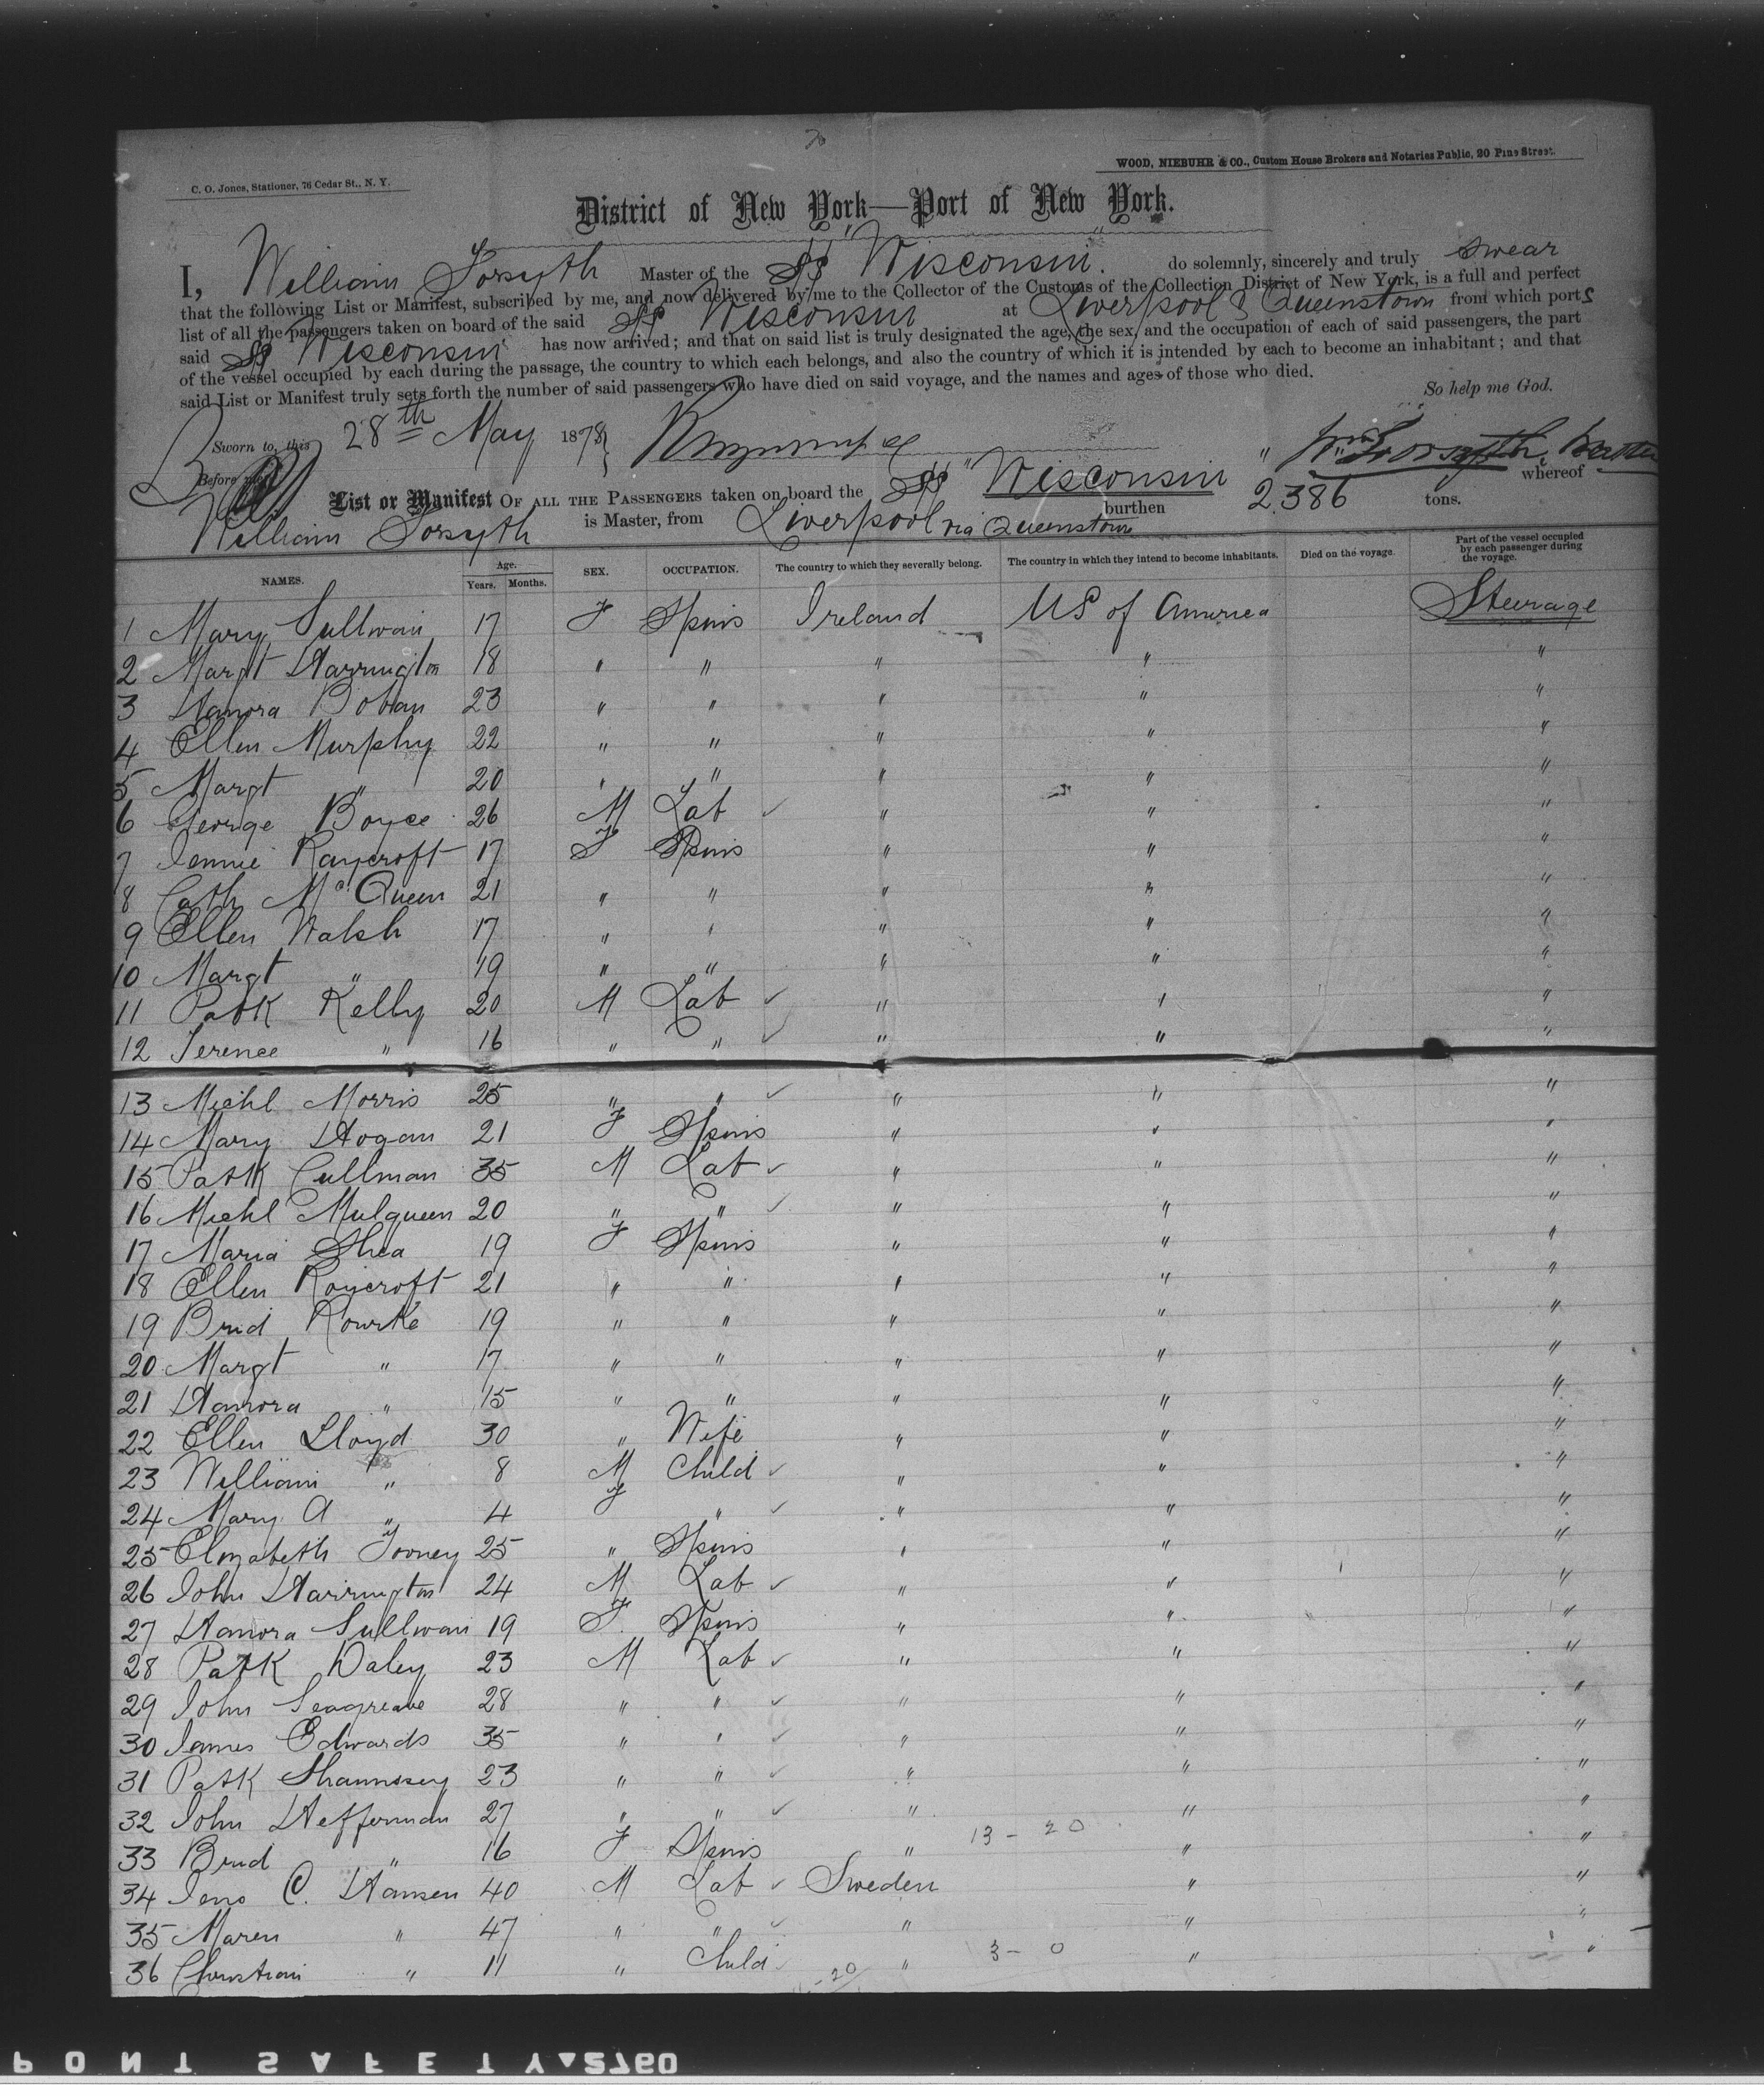 WOOD, NIEBUHR & CO., Custom House Brokers and Notaries Public, 20 Pine Street.
C. O. Jones, Stationer, 76 Cedar St., N. Y.
District of New York—Port of New York.
I, William Forsyth Master of the SS "Wisconsin" do solemnly, sincerely and truly swear
that the following List or Manifest, subscribed by me, and now delivered by me to the Collector of the Customs of the Collection District of New York, is a full and perfect
list of all the passengers taken on board of the said SS Wisconsin at Liverpool & Queenstown from which ports
said SS Wisconsin has now arrived; and that on said list is truly designated the age, the sex, and the occupation of each of said passengers, the part
of the vessel occupied by each during the passage, the country to which each belongs, and also the country of which it is intended by each to become an inhabitant; and that
said List or Manifest truly sets forth the number of said passengers who have died on said voyage, and the names and ages of those who died.
So help me God.
Sworn to, this 28th May 1878
Wm Forsyth, Master
Before me
List or Manifest OF ALL THE PASSENGERS taken on board the SS "Wisconsin" whereof
William Forsyth is Master, from Liverpool via Queenstown burthen 2386 tons.
NAMES. Age. Years. Months. SEX. OCCUPATION. The country to which they severally belong. The country in which they intend to become inhabitants. Died on the voyage. Part of the vessel occupied by each passenger during the voyage.
1 Mary Sullivan 17 F Spins Ireland US of America Steerage
2 Margt Harrington 18 " " " " "
3 Hanora Bohan 23 " " " " "
4 Ellen Murphy 22 " " " " "
5 Margt " 20 " " " " "
6 George Boyce 26 M Lab " " "
7 Jennie Roycroft 17 F Spins " " "
8 Cath McQueen 21 " " " " "
9 Ellen Walsh 17 " " " " "
10 Margt " 19 " " " " "
11 Patk Kelly 20 M Lab " " "
12 Terence " 16 " " " " "
13 Michl Morris 25 " " " " "
14 Mary Hogan 21 F Spins " " "
15 Patk Cullman 35 M Lab " " "
16 Michl Mulqueen 20 " " " " "
17 Maria Shea 19 F Spins " " "
18 Ellen Roycroft 21 " " " " "
19 Brid Rourke 19 " " " " "
20 Margt " 17 " " " " "
21 Hanora " 15 " " " " "
22 Ellen Lloyd 30 " Wife " " "
23 William " 8 M Child " " "
24 Mary A " 4 F " " " "
25 Elizabeth Tooney 25 " Spins " " "
26 John Harrington 24 M Lab " " "
27 Hanora Sullivan 19 F. Spins " " "
28 Patk Daley 23 M Lab " " "
29 John Seagreave 28 " " " " "
30 James Edwards 35 " " " " "
31 Patk Shannssey 23 " " " " "
32 John Heffernan 27 " " " " "
13 - 20
33 Brid " 16 F Spins " " "
34 Jens C. Hansen 40 M Lab Sweden " "
35 Maren " 47 " " " " "
36 Christian " 11 " Child " 3 - 0 " "
PONT SAFETY 2760